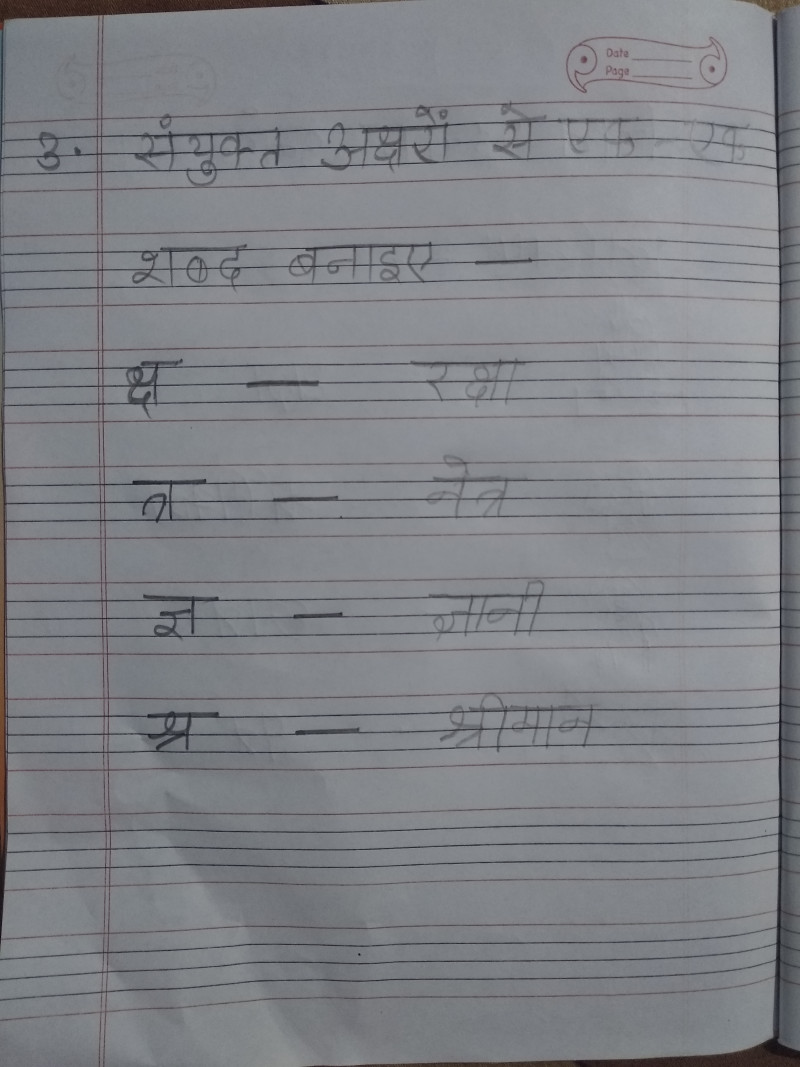 Date
Page
3. संयुक्त अक्षरों से एक - एक
शब्द बनाइए —
क्ष — रक्षा
त्र — नेत्र
ज्ञ — ज्ञानी
श्र — श्रीमान